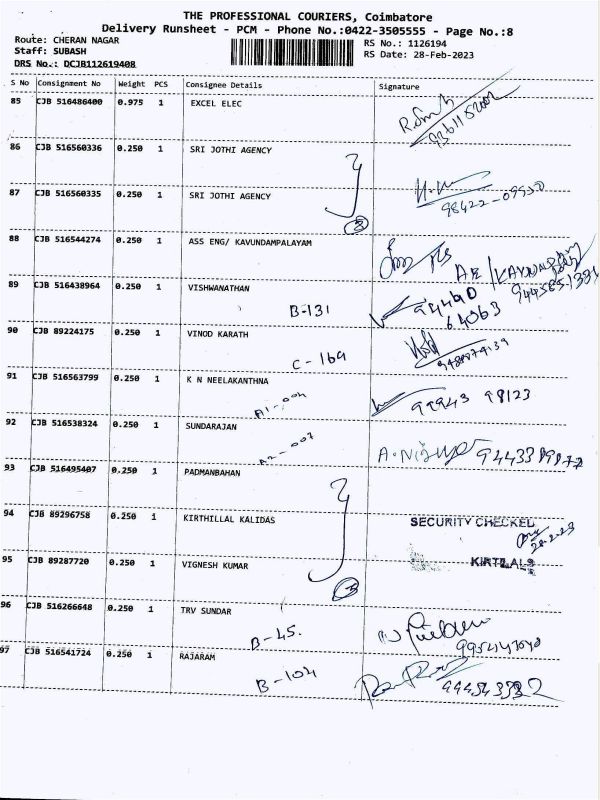 THE PROFESSIONAL COURIERS, Coimbatore
Delivery Runsheet - PCM - Phone No.:0422-3505555 - Page No.:8
Route: CHERAN NAGAR
RS No.: 1126194
Staff: SUBASH
RS Date: 28-Feb-2023
DRS No.: DCJB112619408
S No Consignment No Weight PCS Consignee Details Signature
85 CJB 516486400 0.975 1 EXCEL ELEC
86 CJB 516560336 0.250 1 SRI JOTHI AGENCY
87 CJB 516560335 0.250 1 SRI JOTHI AGENCY
88 CJB 516544274 0.250 1 ASS ENG/ KAVUNDAMPALAYAM
AE /
89 CJB 516438964 0.250 1 VISHWANATHAN
B-131
64063
90 CJB 89224175 0.250 1 VINOD KARATH
C-169
91 CJB 516563799 0.250 1 K N NEELAKANTHNA
98123
92 CJB 516538324 0.250 1 SUNDARAJAN
A2-007
93 CJB 516495407 0.250 1 PADMANBAHAN
94 CJB 89296758 0.250 1 KIRTHILLAL KALIDAS
SECURITY CHECKED
28-2-23
KIRTILALS
95 CJB 89287720 0.250 1 VIGNESH KUMAR
96 CJB 516266648 0.250 1 TRV SUNDAR
B-45.
97 CJB 516541724 0.250 1 RAJARAM
B-104